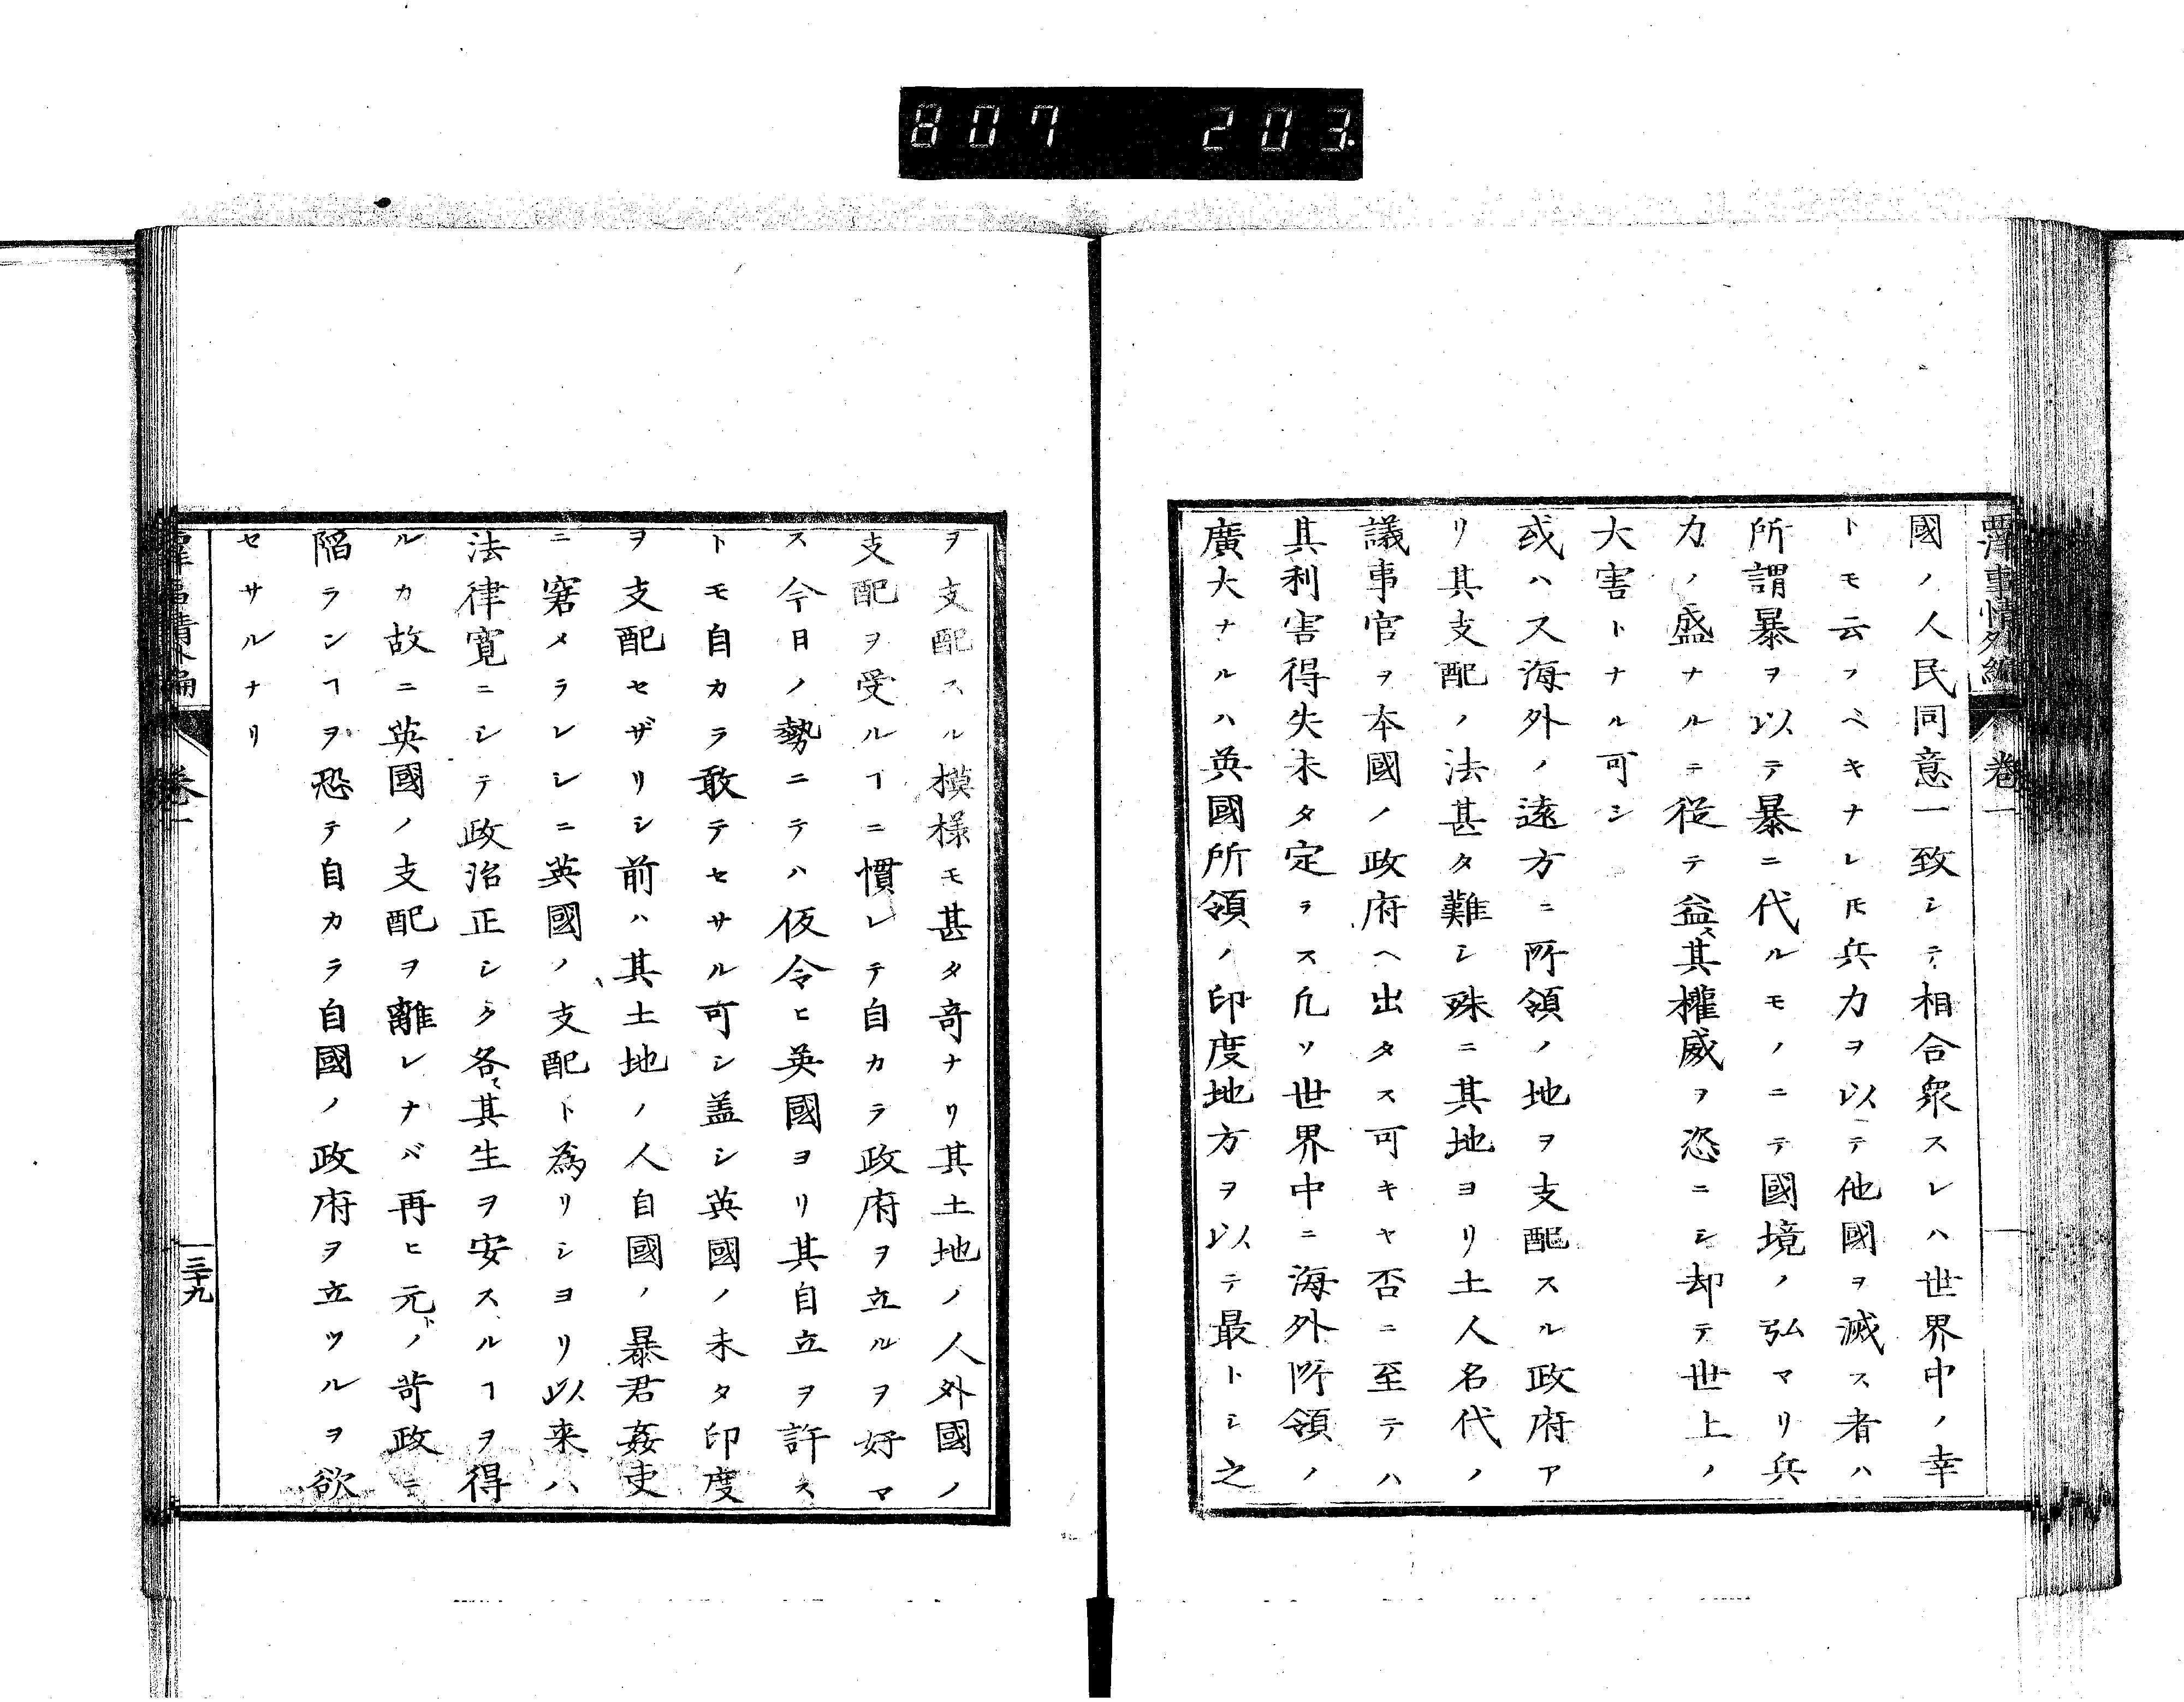 807 203.
西洋事情外編 卷一
國ノ人民同意一致シテ相合衆スレハ世界中ノ幸
トモ云フベキナレ𪜈兵力ヲ以テ他國ヲ滅ス者ハ
所謂暴ヲ以テ暴ニ代ルモノニテ國境ノ弘マリ兵
力ノ盛ナルニ從テ益々其權威ヲ恣ニシ却テ世上ノ
大害トナル可シ
或ハ又海外ノ遠方ニ所領ノ地ヲ支配スル政府ア
リ其支配ノ法甚タ難シ殊ニ其地ヨリ土人名代ノ
議事官ヲ本國ノ政府ヘ出タス可キヤ否ニ至テハ
其利害得失未タ定ラス凡ソ世界中ニ海外所領ノ
廣大ナルハ英國所領ノ印度地方ヲ以テ最トシ之
ヲ支配スル模様モ甚タ奇ナリ其土地ノ人外國ノ
支配ヲ受ルヿニ慣レテ自カラ政府ヲ立ルヲ好マ
ス今日ノ勢ニテハ仮令ヒ英國ヨリ其自立ヲ許ス
トモ自カラ敢テセサル可シ盖シ英國ノ未タ印度
ヲ支配セザリシ前ハ其土地ノ人自國ノ暴君姦吏
ニ窘メラレシニ英國ノ支配ト為リシヨリ以来ハ
法律寛ニシテ政治正シク各々其生ヲ安スルヿヲ得
ルカ故ニ英國ノ支配ヲ離レナバ再ヒ元トノ苛政ニ
陥ランヿヲ恐テ自カラ自國ノ政府ヲ立ツルヲ欲
セサルナリ
西洋事情外編 卷一 三十九